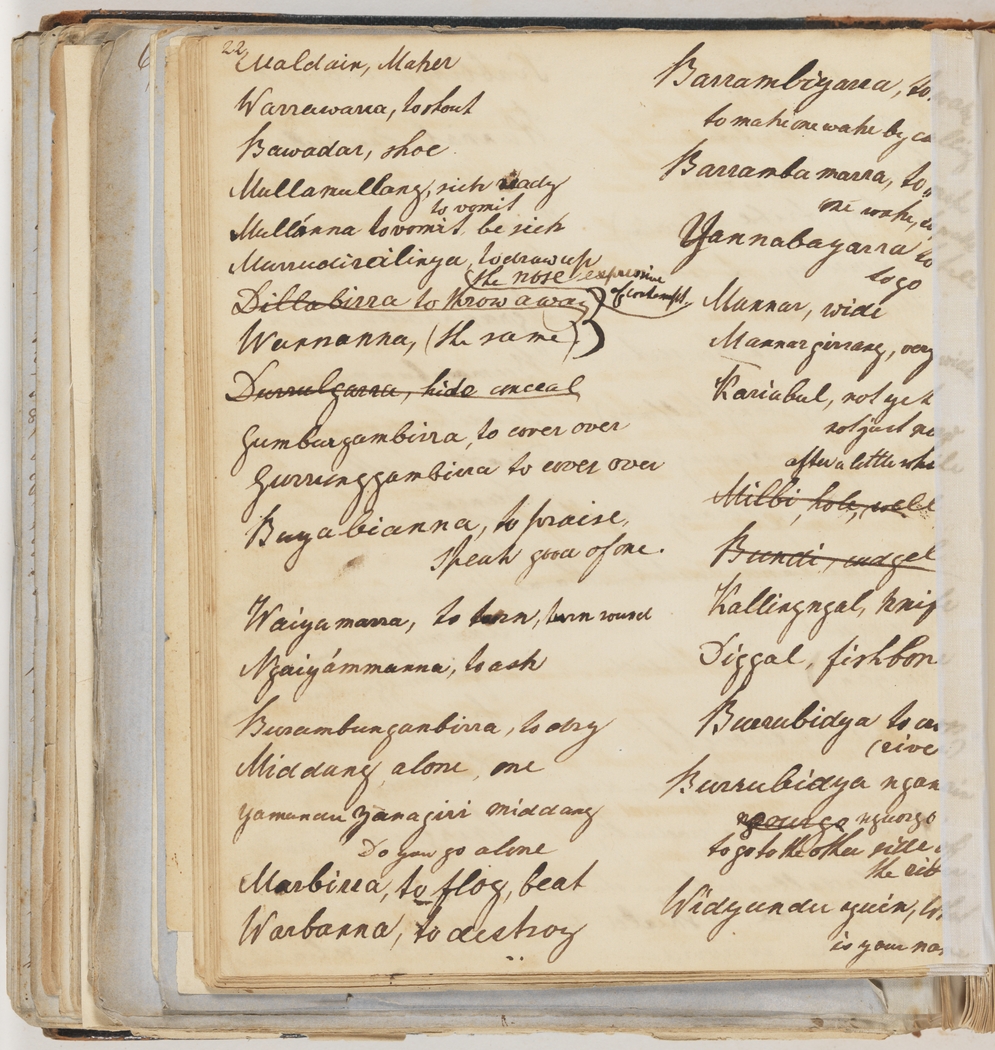 22
Maldain, Maker
Warrawarra, to shout
Bawadar, shoe
Mullanullang, sick ready
to vomit
Mullánna to vomit, be sick
Murrudiráilinya, to draw up
the nose expressive
of contempt
Dillabirra to throw away
Wannanna, (the same)
Durrulgarra, hide conceal
Gumbargambirra, to cover over
Gurrunggambirra to cover over
Buyabianna, to praise,
speak good of one.
Waiyamarra, to turn, turn round
Ngaiyámmanna, to ask
Burambunganbirra, to dry
Middang alone, one
Yamundu yanagiri middang
Do you go alone
Marbirra, to flog, beat
Warbanna, to destroy
Barrambiyarra, to
to make one wake by ca
Barramba marra, to
one wake,
Yannabayarra to
to go
Mannar, wide
Mannargirrang, very
Kariabul, not yet
not just no
after a little whi
Milbi, hole, well
Bundi, cudgel
Kallingngal, knif
Diggal, fishbone
Burrubidya to
(rive
Burrubidya ngan
nguorgo
to go to the other side
the
Widyundu yuin,
is your na